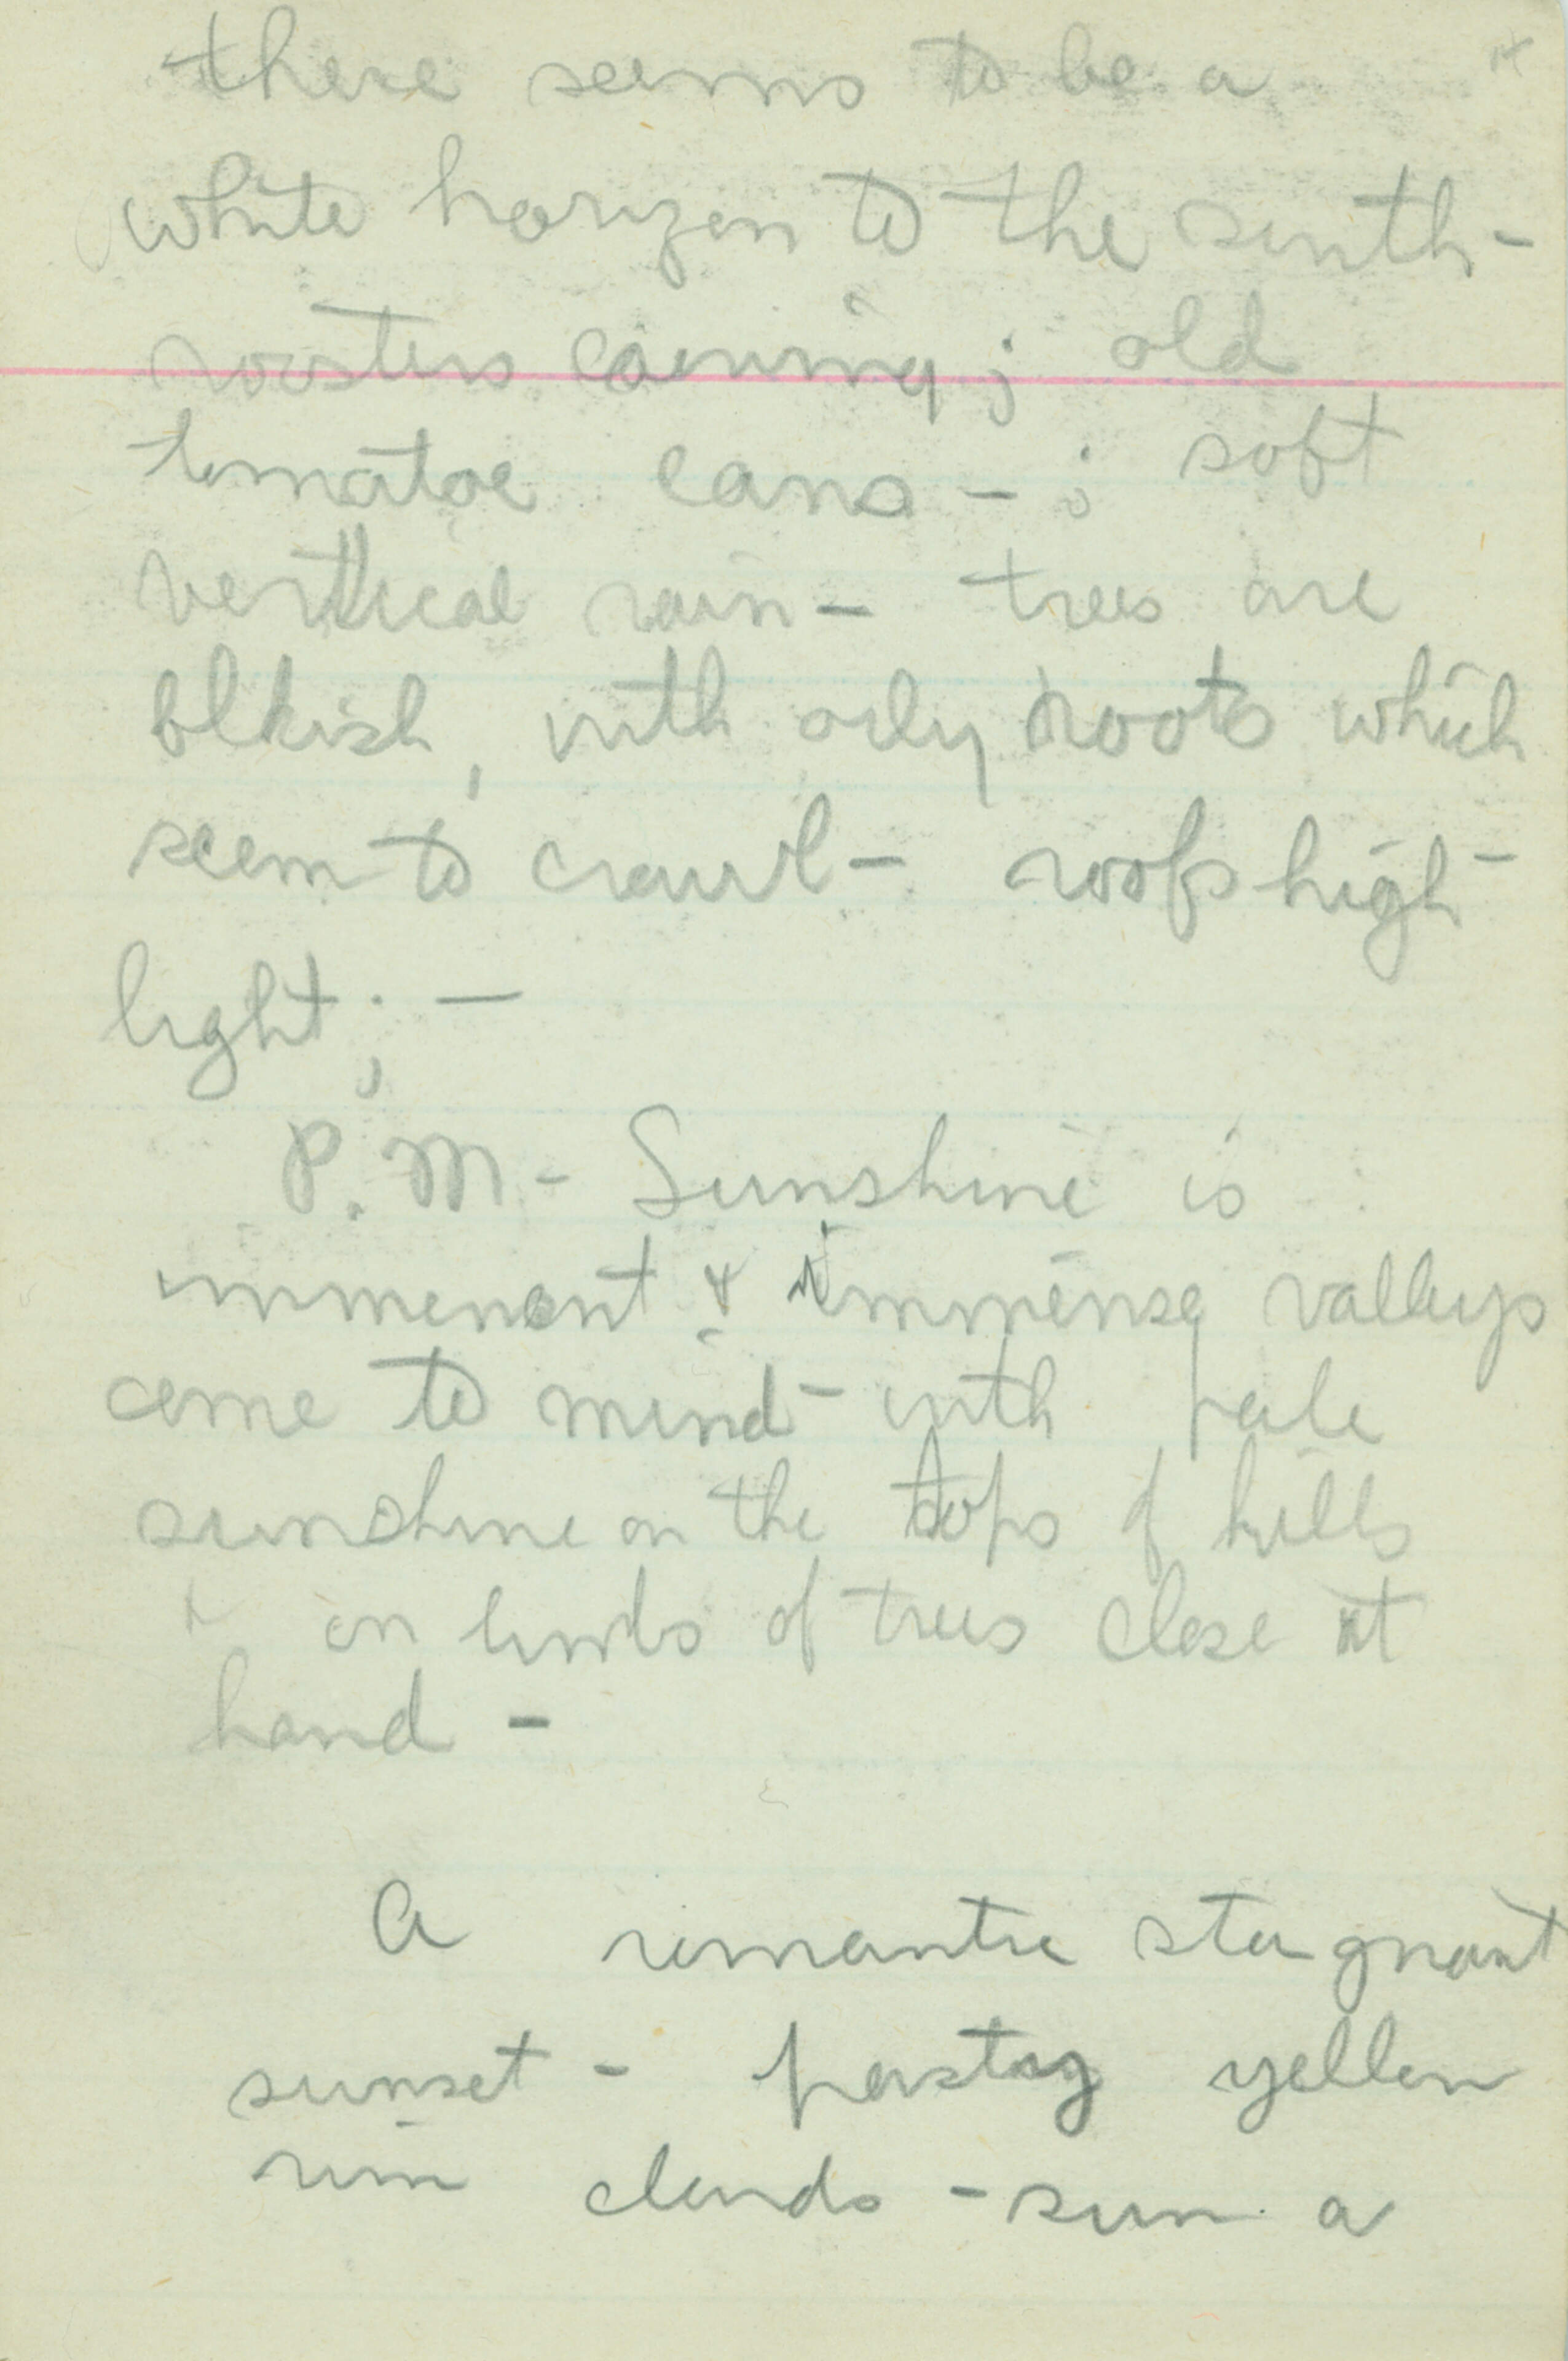 there seems to be a
white horizon to the south –
roosters cawing; old
tomatoe cans – ; soft
vertical rain – trees are
blkish, with oily roots which
seem to crawl – roofs high –
light; —
P.M – Sunshine is
immenent & immense valleys
come to mind – with pale
sunshine on the tops of hills
& on limbs of trees close at
hand –
A romantic stagnant
sunset – pasty yellow
rim clouds – sun a